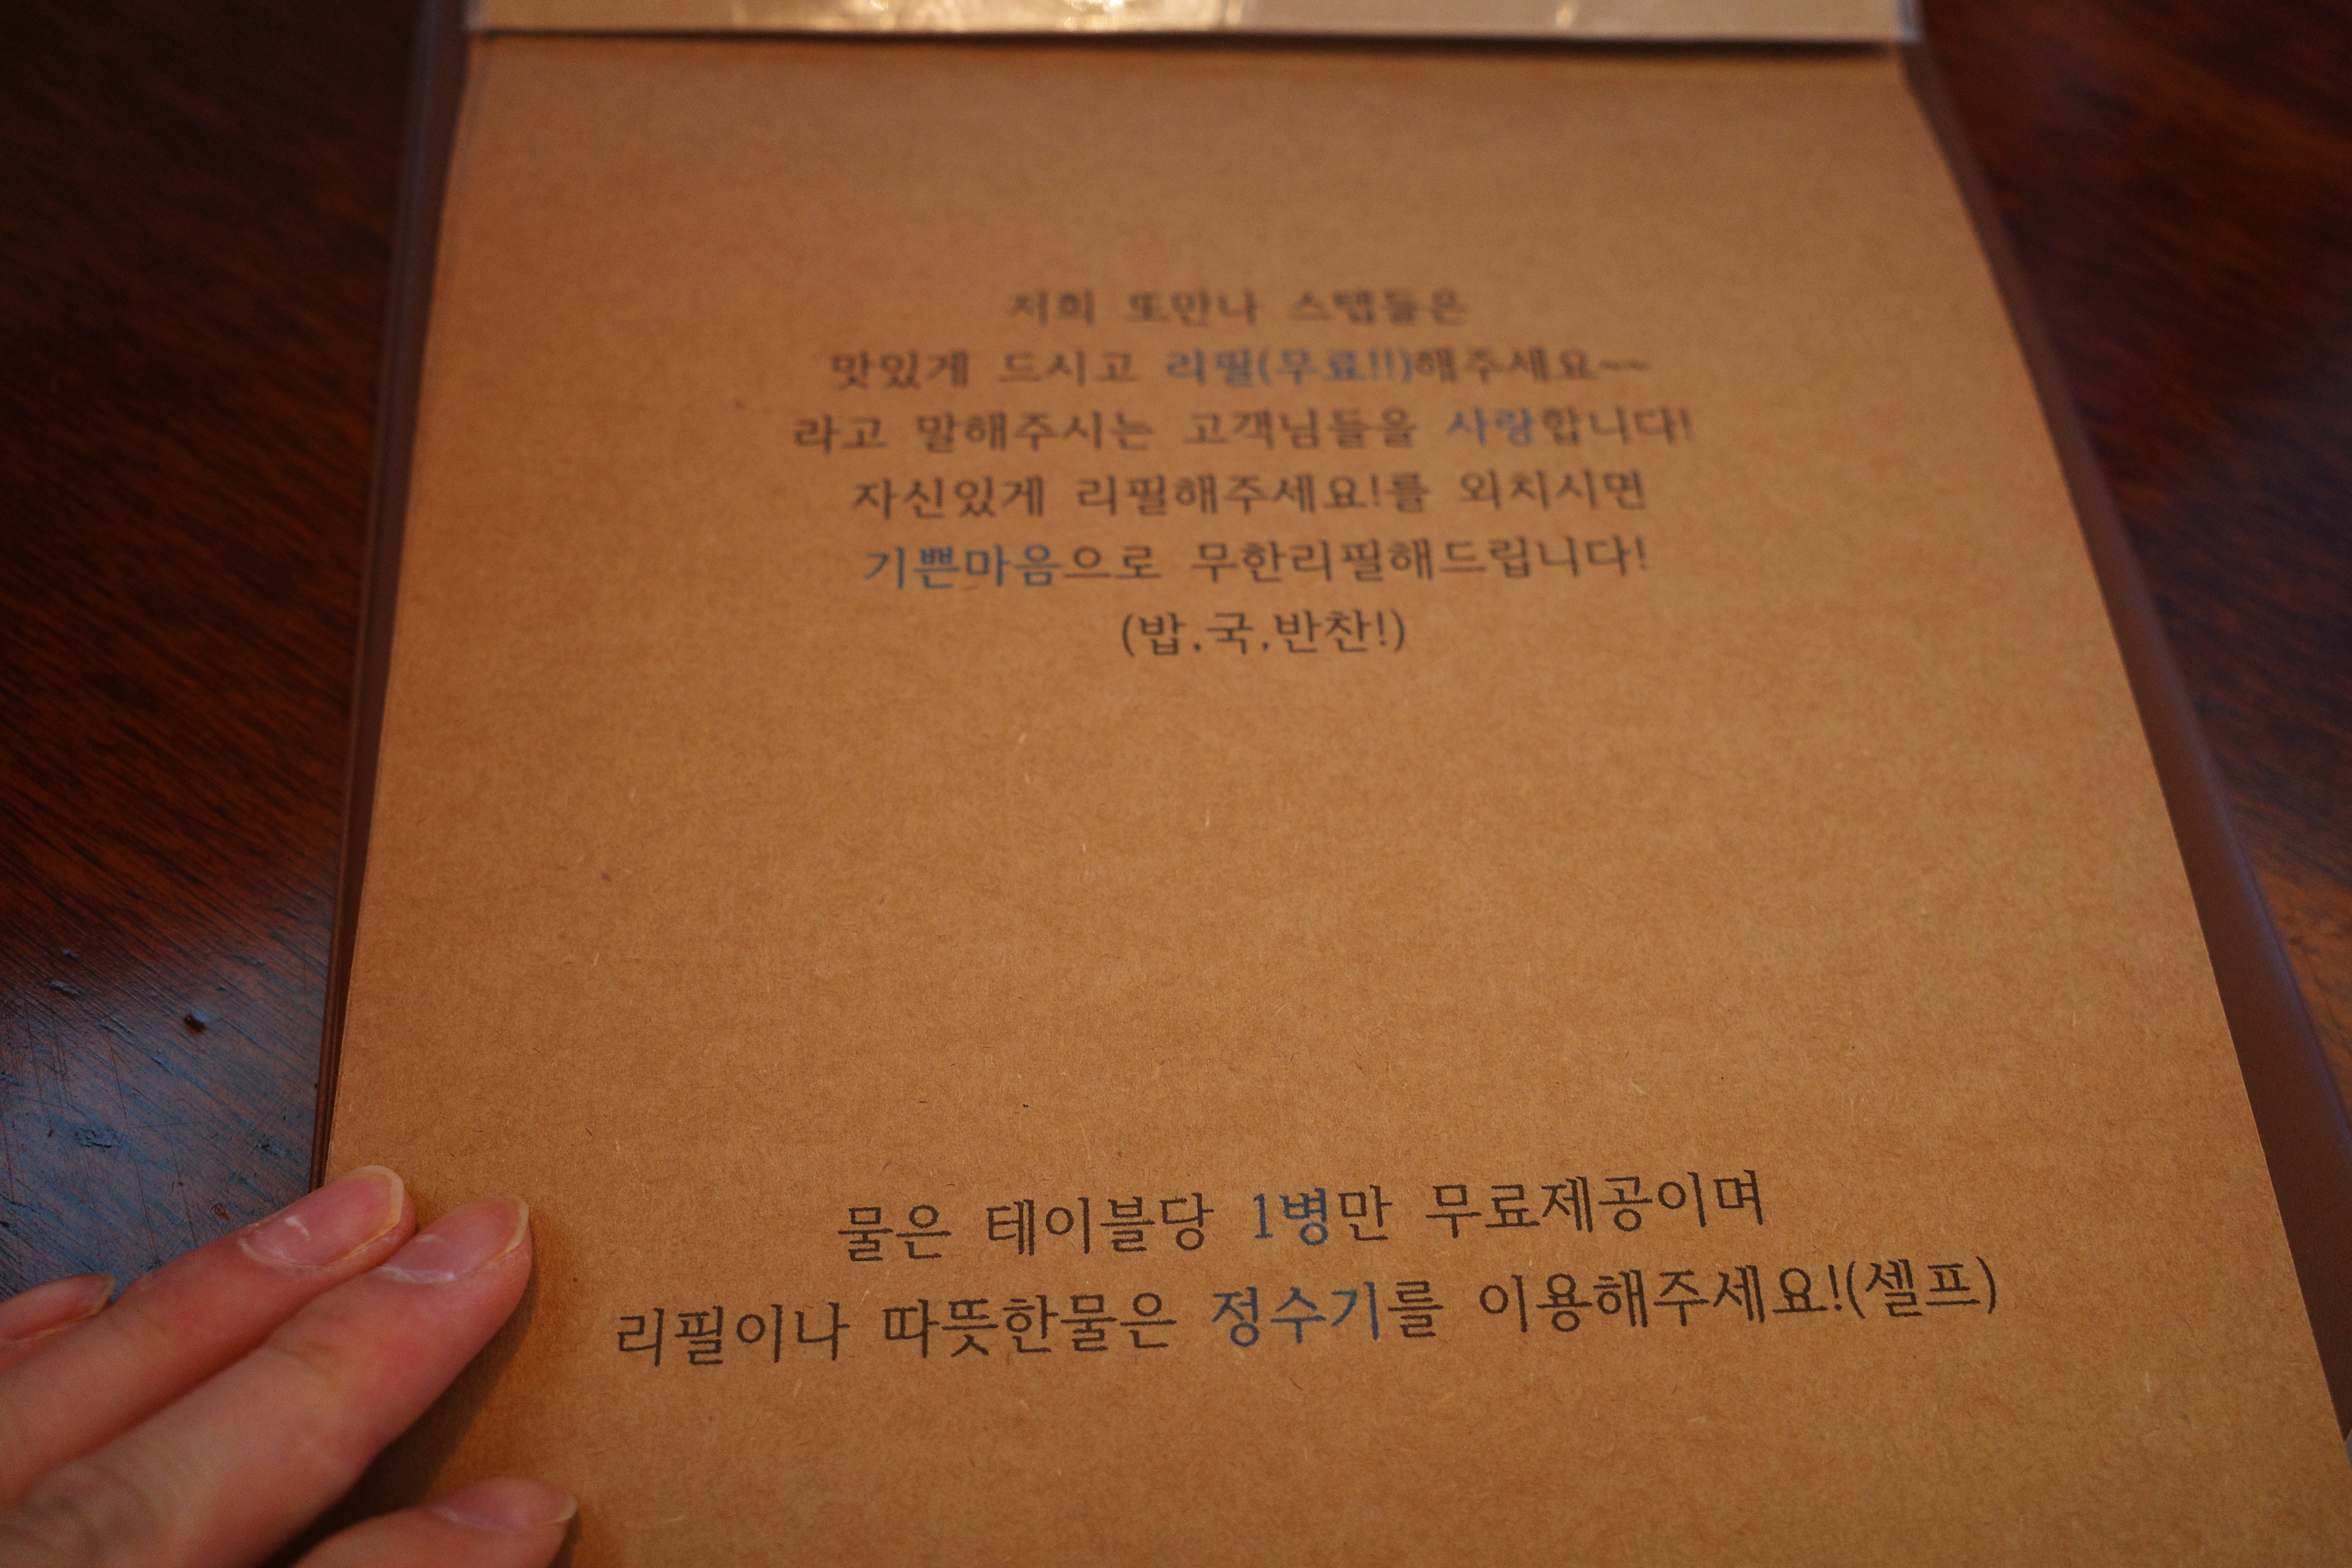 저희 또만나 스탭들은
맛있게 드시고 리필(무료!!)해주세요~~
라고 말해주시는 고객님들을 사랑합니다!
자신있게 리필해주세요!를 외치시면
기쁜마음으로 무한리필해드립니다!
(밥,국,반찬!)
물은 테이블당 1병만 무료제공이며
리필이나 따뜻한물은 정수기를 이용해주세요!(셀프)